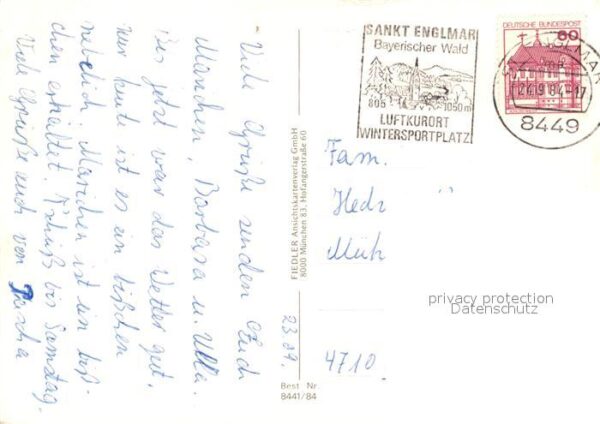 Viele Grüße senden Euch
Marichen, Barbara u. Ulla.
Bis jetzt war das Wetter gut,
nur heute ist es ein bißchen
neblich. Marichen ist ein biß-
chen erkältet. Tschüß bis Samstag.
Viele Grüße auch von Pascha
23.09.
FIEDLER Ansichtskartenverlag GmbH
8000 München 83, Hofangerstraße 60
Best Nr.
8441/84
SANKT ENGLMAR
Bayerischer Wald
805 - 1050 m
LUFTKURORT
WINTERSPORTPLATZ
DEUTSCHE BUNDESPOST
60
24.9.84-17
8449
Fam.
Hedr
Müh
4710
privacy protection
Datenschutz